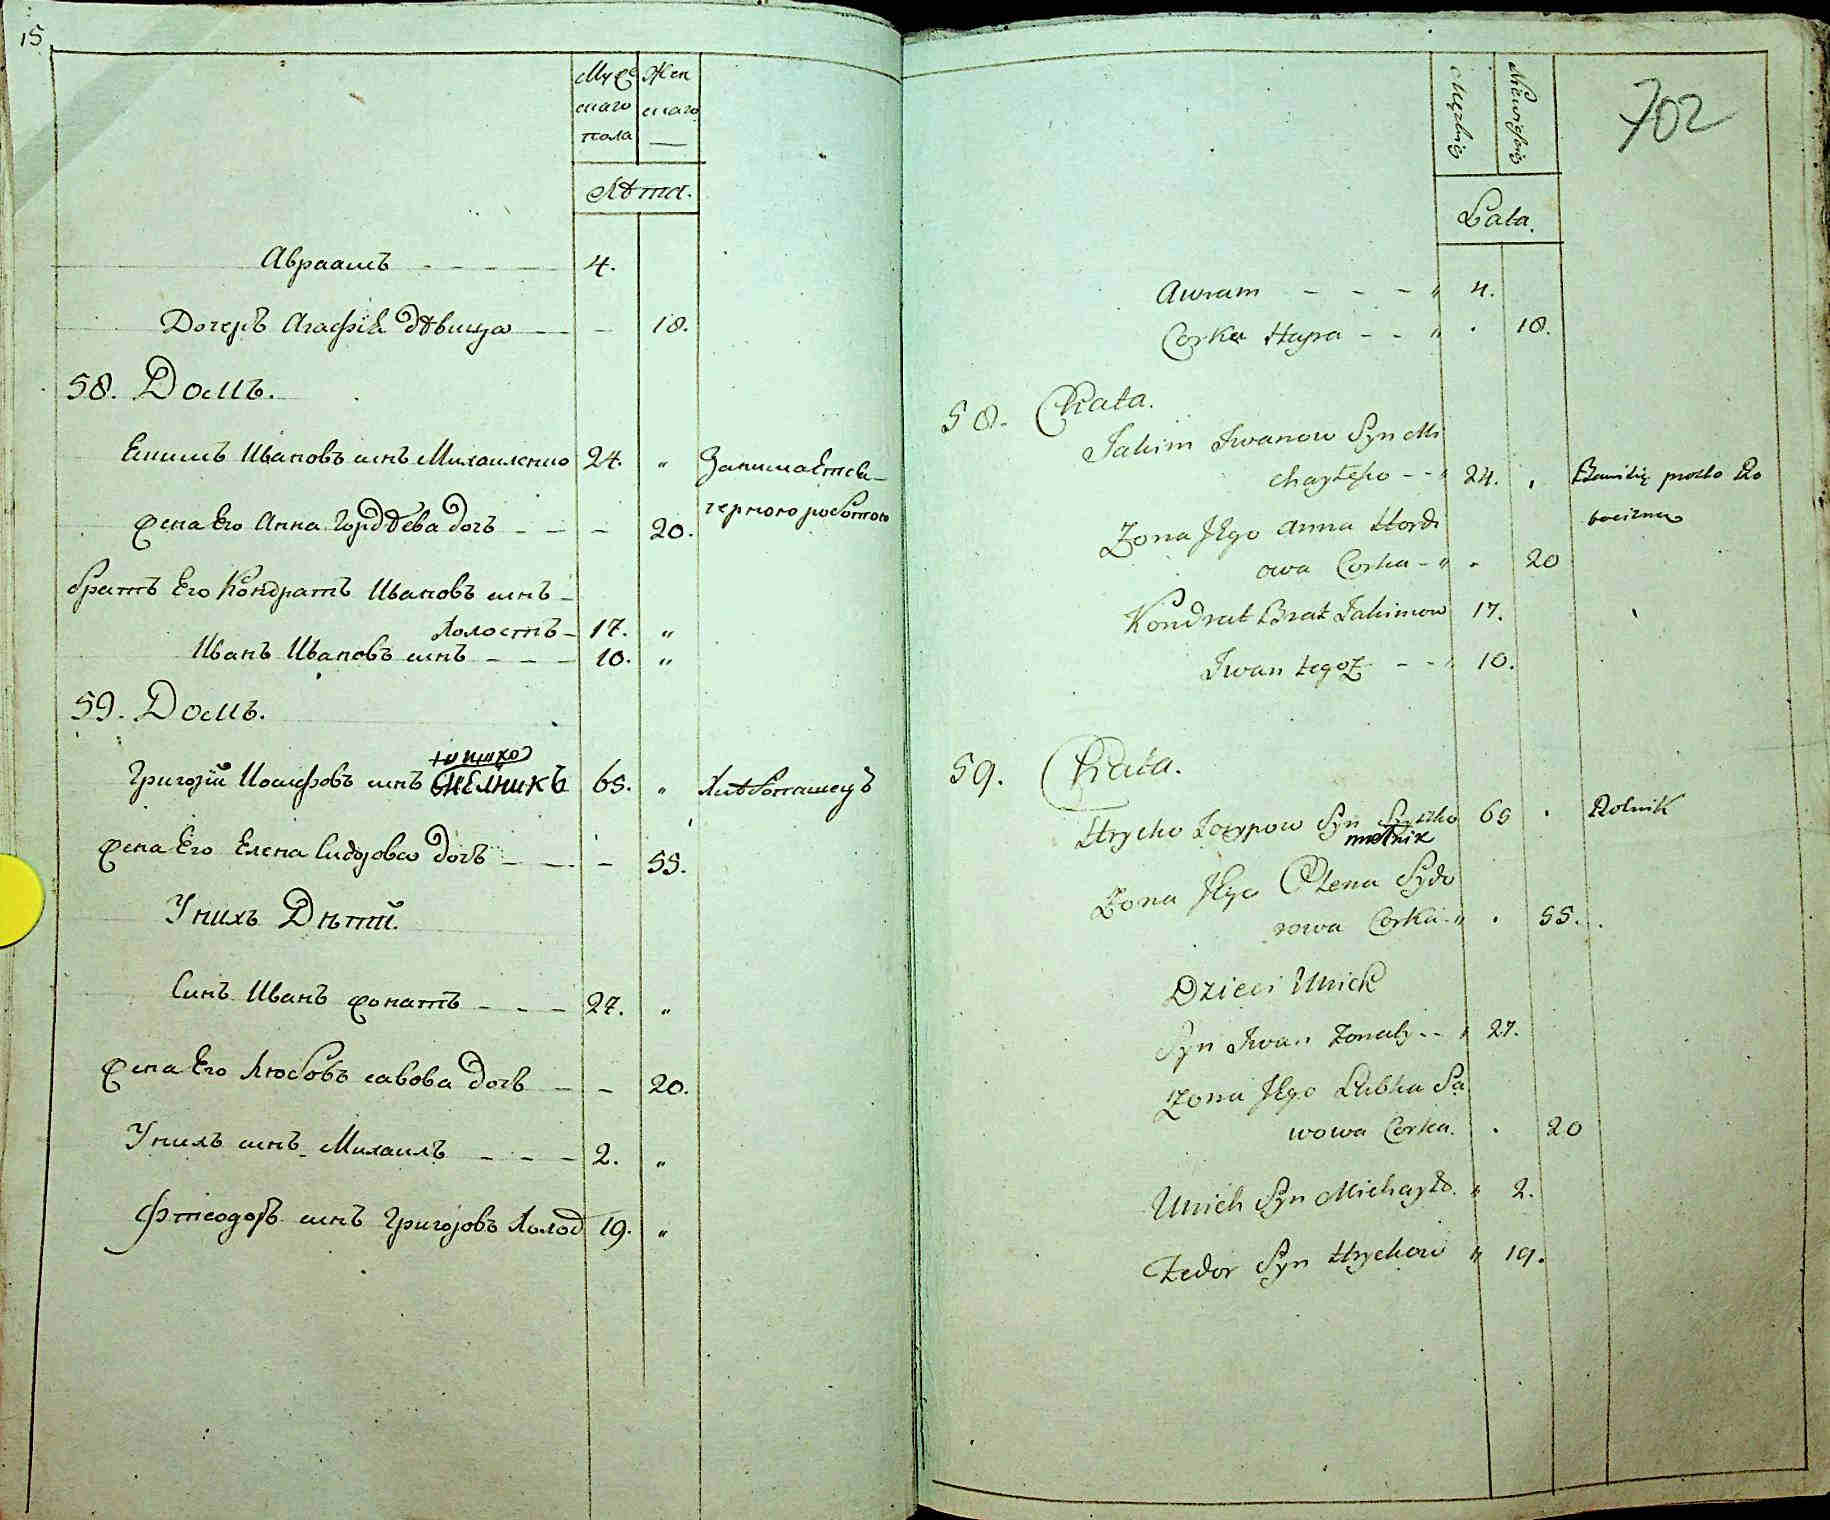 15
Мужескаго пола
Женскаго
Лѣта.
Авраамъ 4.
Дочеръ Агафія дѣвица 18.
58. Домъ.
Екимъ Ивановъ синъ Михаиленко 24. „ Занимаетси
чернорободтою
жена Его Анна Гордѣева дочъ 20.
братъ Его Кондратъ Ивановъ синъ
Холостъ 17. „
Иванъ Ивановъ синъ 10. „
59. Домъ.
Григорій Иосифовъ синъ мелникъ 65. „ Хлѣбопашецъ
жена Его Елена Сидорова дочъ 55.
У нихъ Дѣтій.
Синъ Иванъ жонатъ 27. „
жена Его Любовъ савова дочъ 20.
У нихъ синъ Михаилъ 2. „
Фтеодоръ синъ Григоровъ Холост 19. „
702
Męzkiey
Niewieściey
Lata.
Awram 4.
Corka Hapa 18.
58. Chata.
Jakim Iwanow Syn Mi
chayłeko 24. Bawiący prosto Ro
bocizno
Zona Jego Anna Hordi
owa Corka 20
Kondrat Brat Jakimow 17.
Iwan tegoż 10.
59. Chata.
Hrycko Jozypow Syn 65 Rolnik
mielnik
Zona Jego Olena Sydo
rowa Corka 55.
Dzieci Unich
Syn Iwan Zonaty 27.
Zona Jego Lubka Sa
wowa Corka. 20
Unich Syn Michayło. 2.
Fedor Syn Hryckow 19.